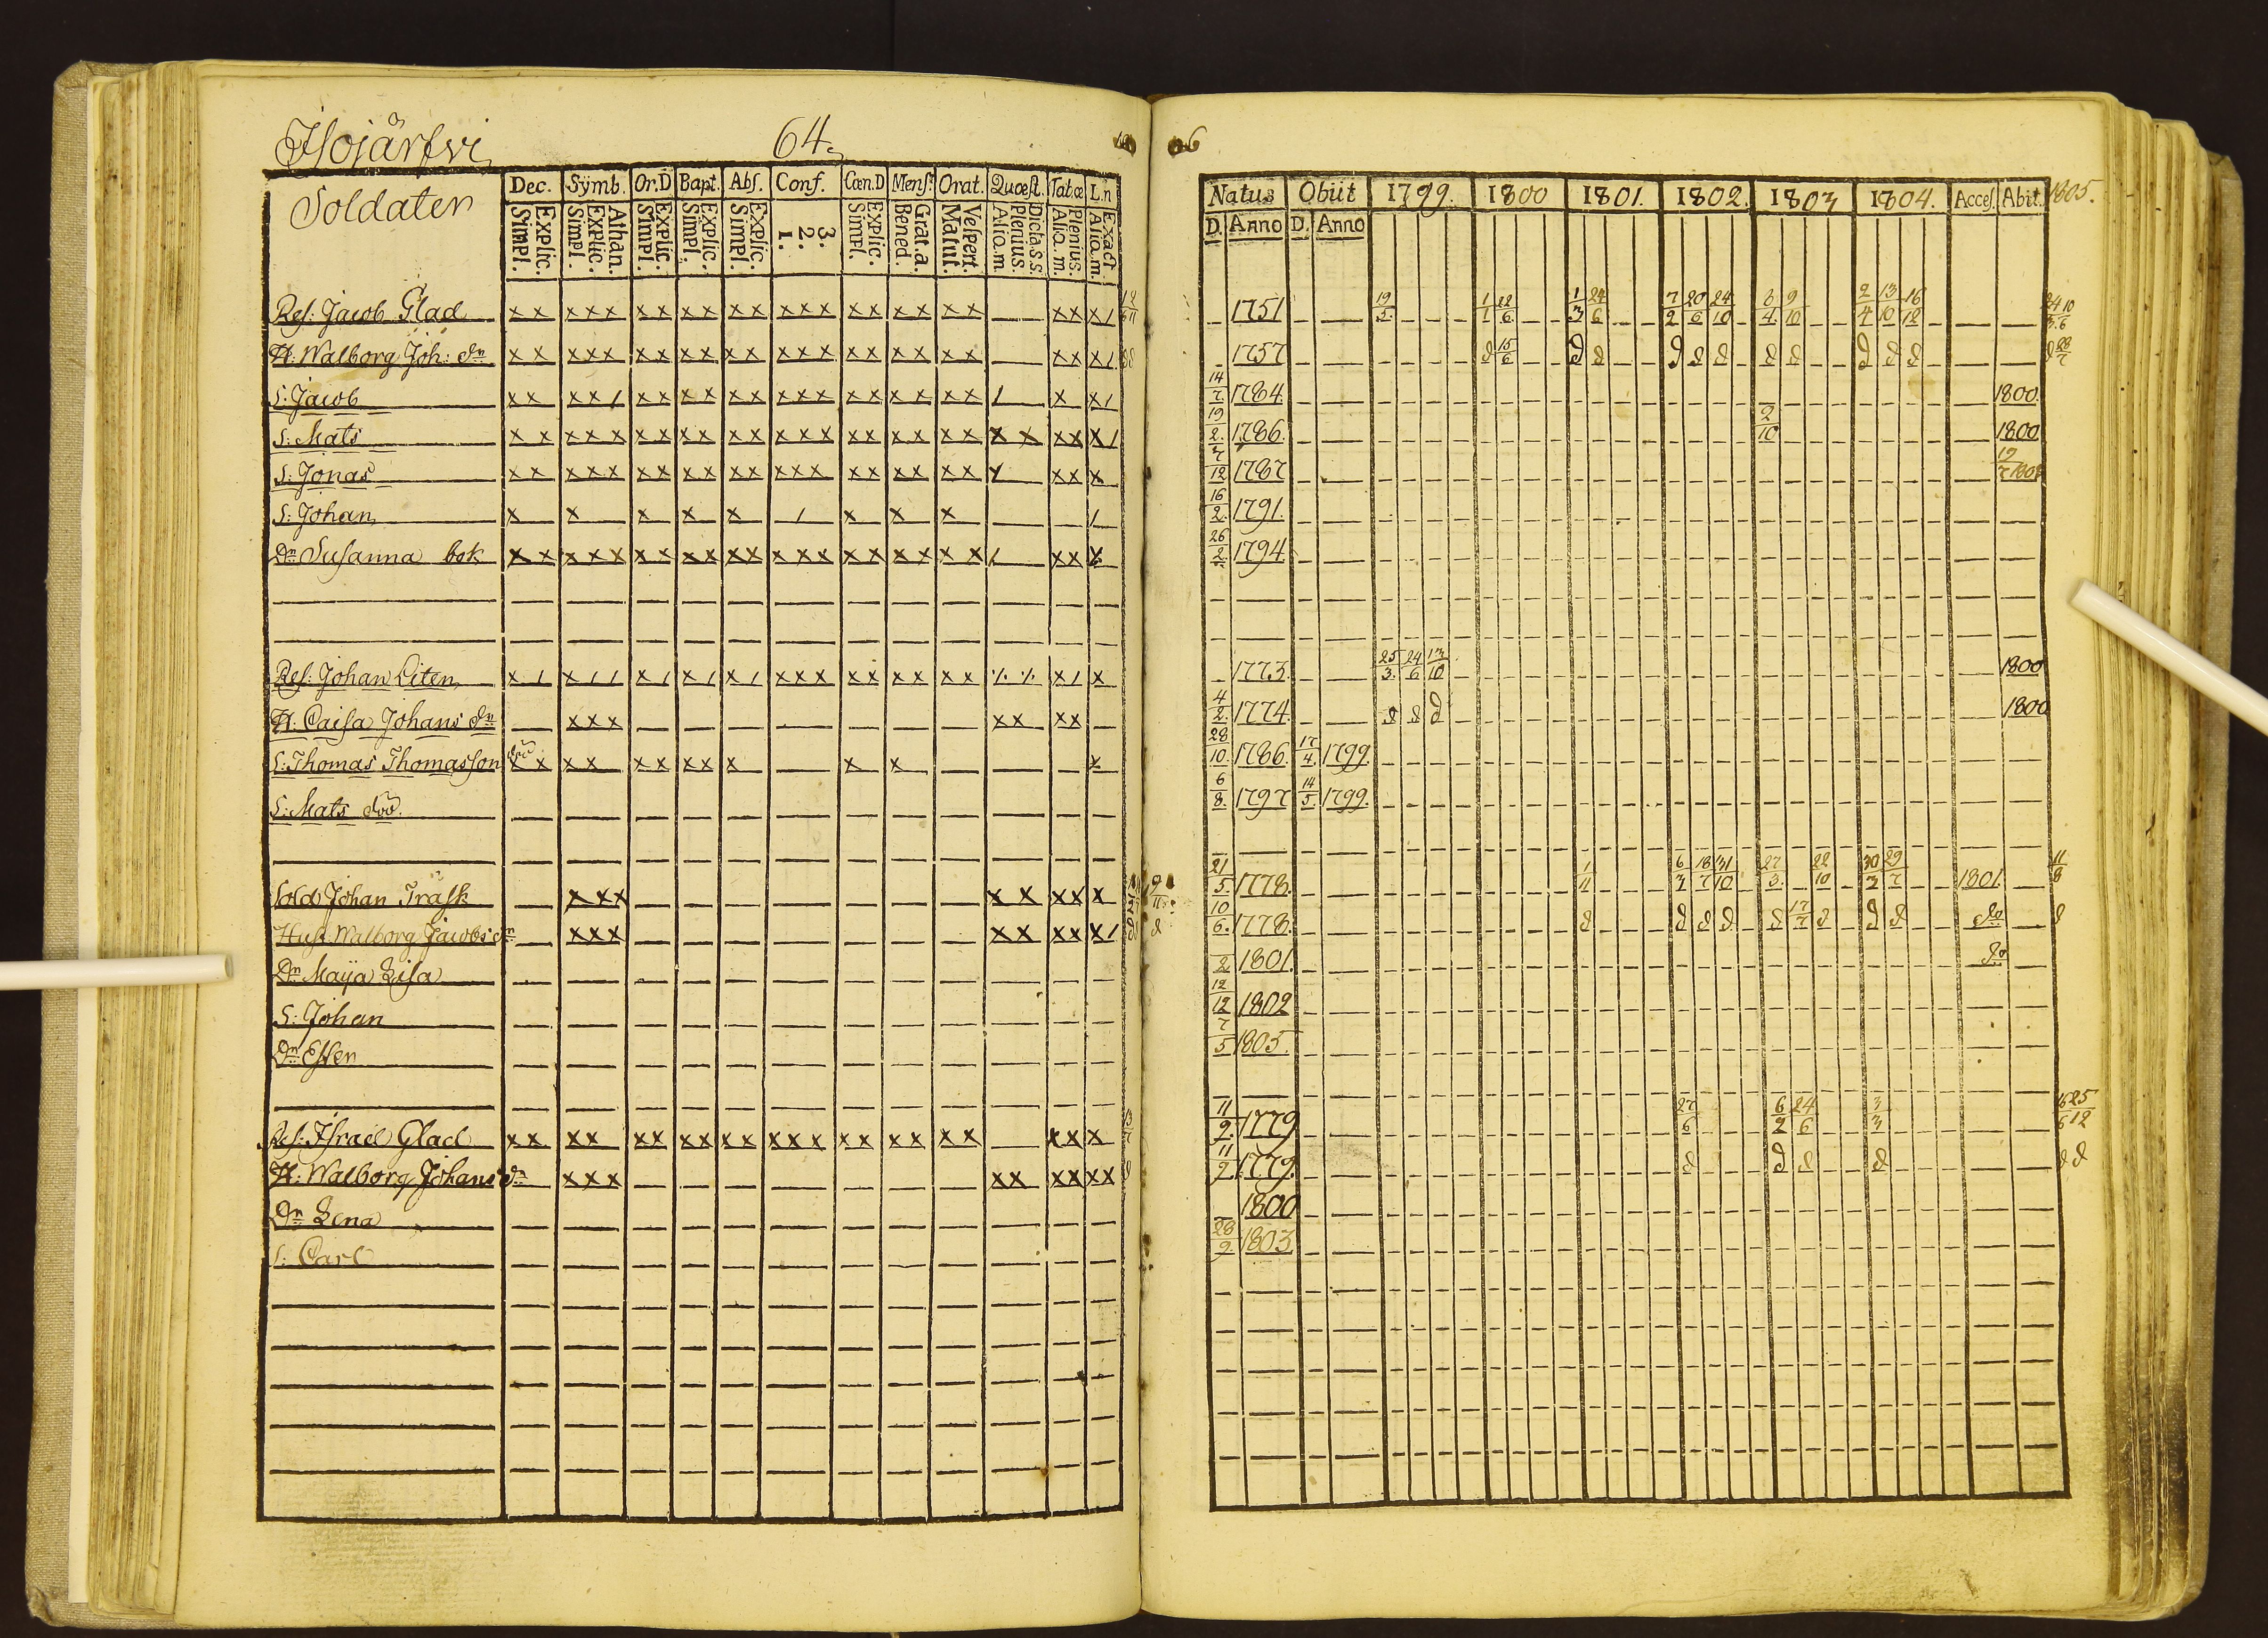 Isojärfvi 64.
Soldaten
Dec. Sÿmb. Or.D Bapt. Abs. Conf. Cœn.D Mens. Orat. Quœst. Tabæ L.n
Explic. Simpl. Athan. Explic. Simpl. Explic. Simpl. Explic. Simpl. Explic. Simpl. 3. 2. 1. Explic. Simpl. Grat.a. Bened. Vespert. Matut. Dicta.s.s. Plenius. Aliq.m. Plenius. Aliq.m. Exact Aliq.m.
Res: Jacob Glad x x x x x x x x x x x x x x x x x x x x x x x /
H: Walborg Joh: dn x x x x x x x x x x x x x x x x x x x x x x x /
S: Jacob x x x x / x x x x x x x x x x x x x x x / x x /
S: Mats x x x x x x x x x x x x x x x x x x x x x x x x x /
S: Jonas x x x x x x x x x x x x x x x x x x x x x x x
S: Johan x x x x x / x x x /
Dn Susanna bok x x x x x x x x x x x x x x x x x x x x / x x x
Res: Johan Liten x / x / / x / x / x / x x x x x x x x x x / x
H. Caisa Johans dn x x x x x x x
S: Thomas Thomasson död x x x x x x x x x x x x
S: Mats död.
Sold Johan Träsk x x x x x x x x
Hust. Walborg Jacobs dn x x x x x x x x /
Dn Maÿa Lisa
S: Johan
Dn Ester
Res: Israel Glad x x x x x x x x x x x x x x x x x x x x x x
H: Walborg Johans dn x x x x x x x x x
Dn Lena
S: Carl
Natus Obiit 1799. 1800 1801. 1802. 1803 1804. Acces. Abit. 1805.
D. Anno D. Anno
1751 19/5 1/1 22/6 1/3 24/6 7/2 20/6 24/10 3/4 9/10 2/4 13/10 16/12
1757 d 15/6 d d d d d d d d d d d 28/7
14/7 1784 1800
19/2 1786 2/10 1800
7/12 1787 19/7
16/2 1791
26/2 1794
1773 25/3 24/6 13/10 1800
4/2 1774 d d d 1800
28/10 1786 17/4 1799
6/8 1797 14/5 1799
21/5 1778 1/11 6/3 18/7 31/10 27/3 22/10 30/3 29/7 1801 11/8
10/6 1778 d d d d d 17/7 d d d do d
2 1801 do
12/12 1802
7/5 1805
11/9 1779 27/6 6/2 24/6 3/3
11/9 1779 d d d d d d
1800
28/9 1803